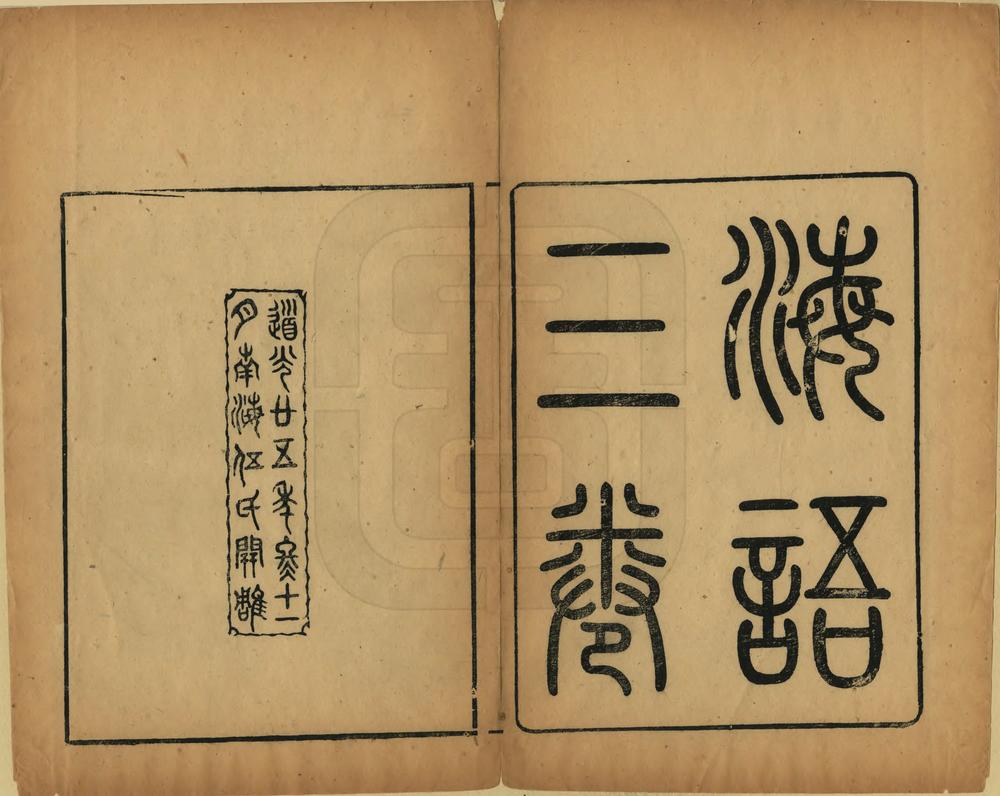 海語
三卷
道光廿五年冬十一
月南海伍氏開雕